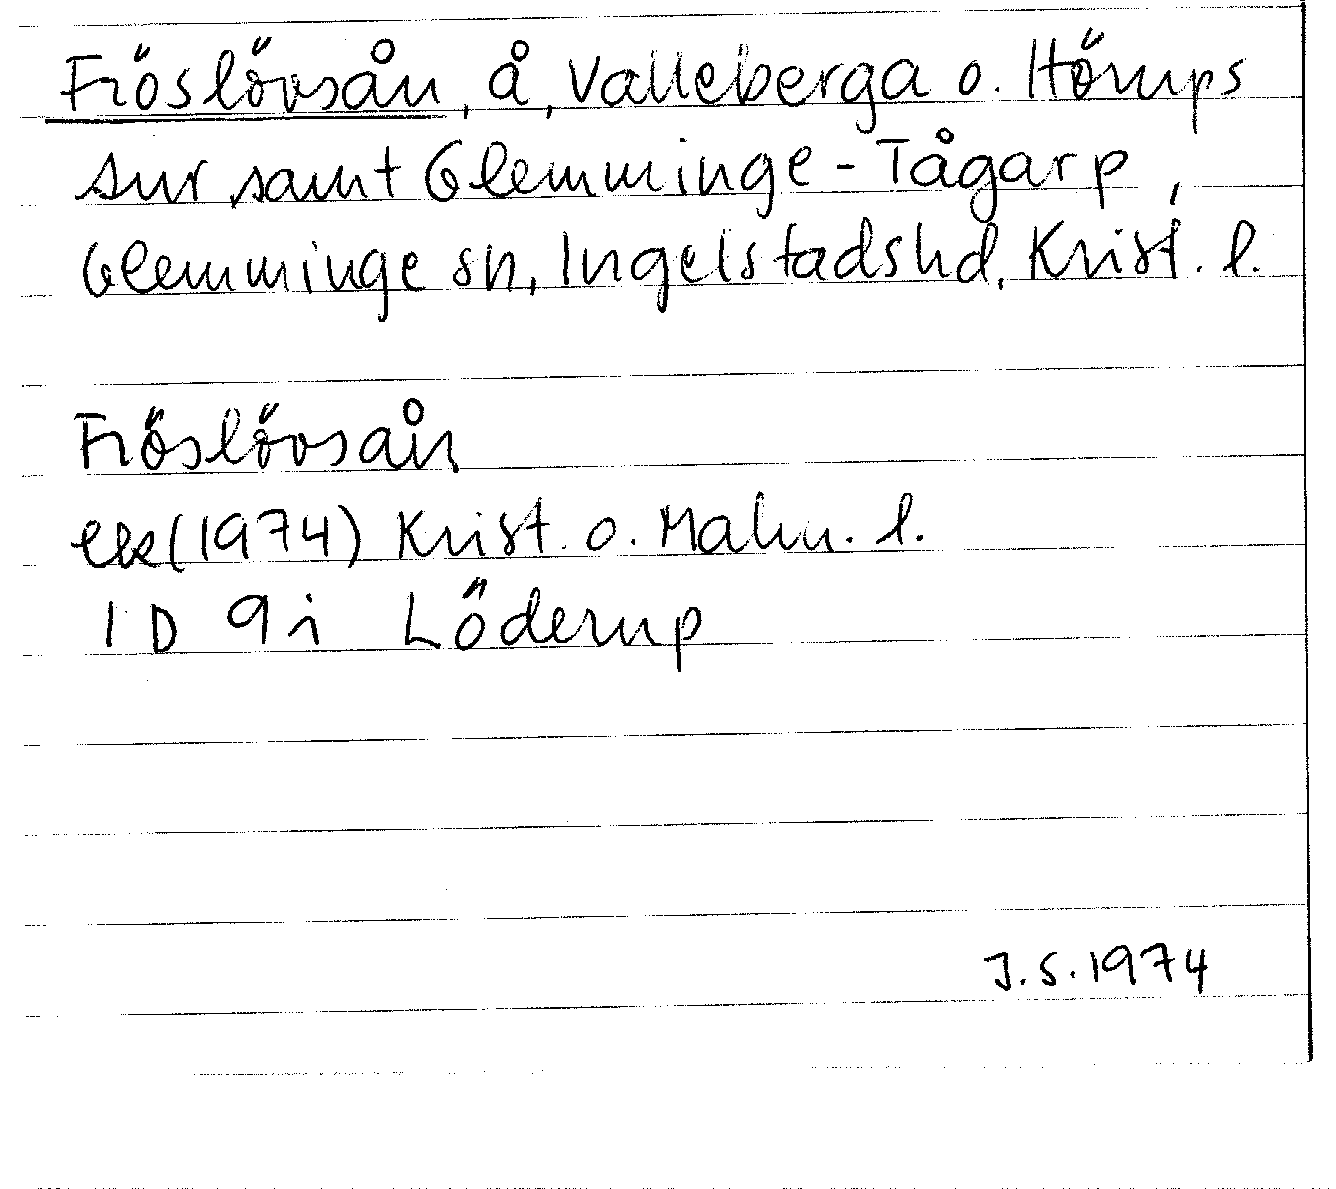 Fröslövsån, å, Valleberga o. Hörups
snr samt Glemminge-Tågarp,
Glemminge sn, Ingelstads hd, Krist. l.
Fröslövsån
ek (1974) Krist. o. Malm. l.
1D 9i Löderup
J.S. 1974